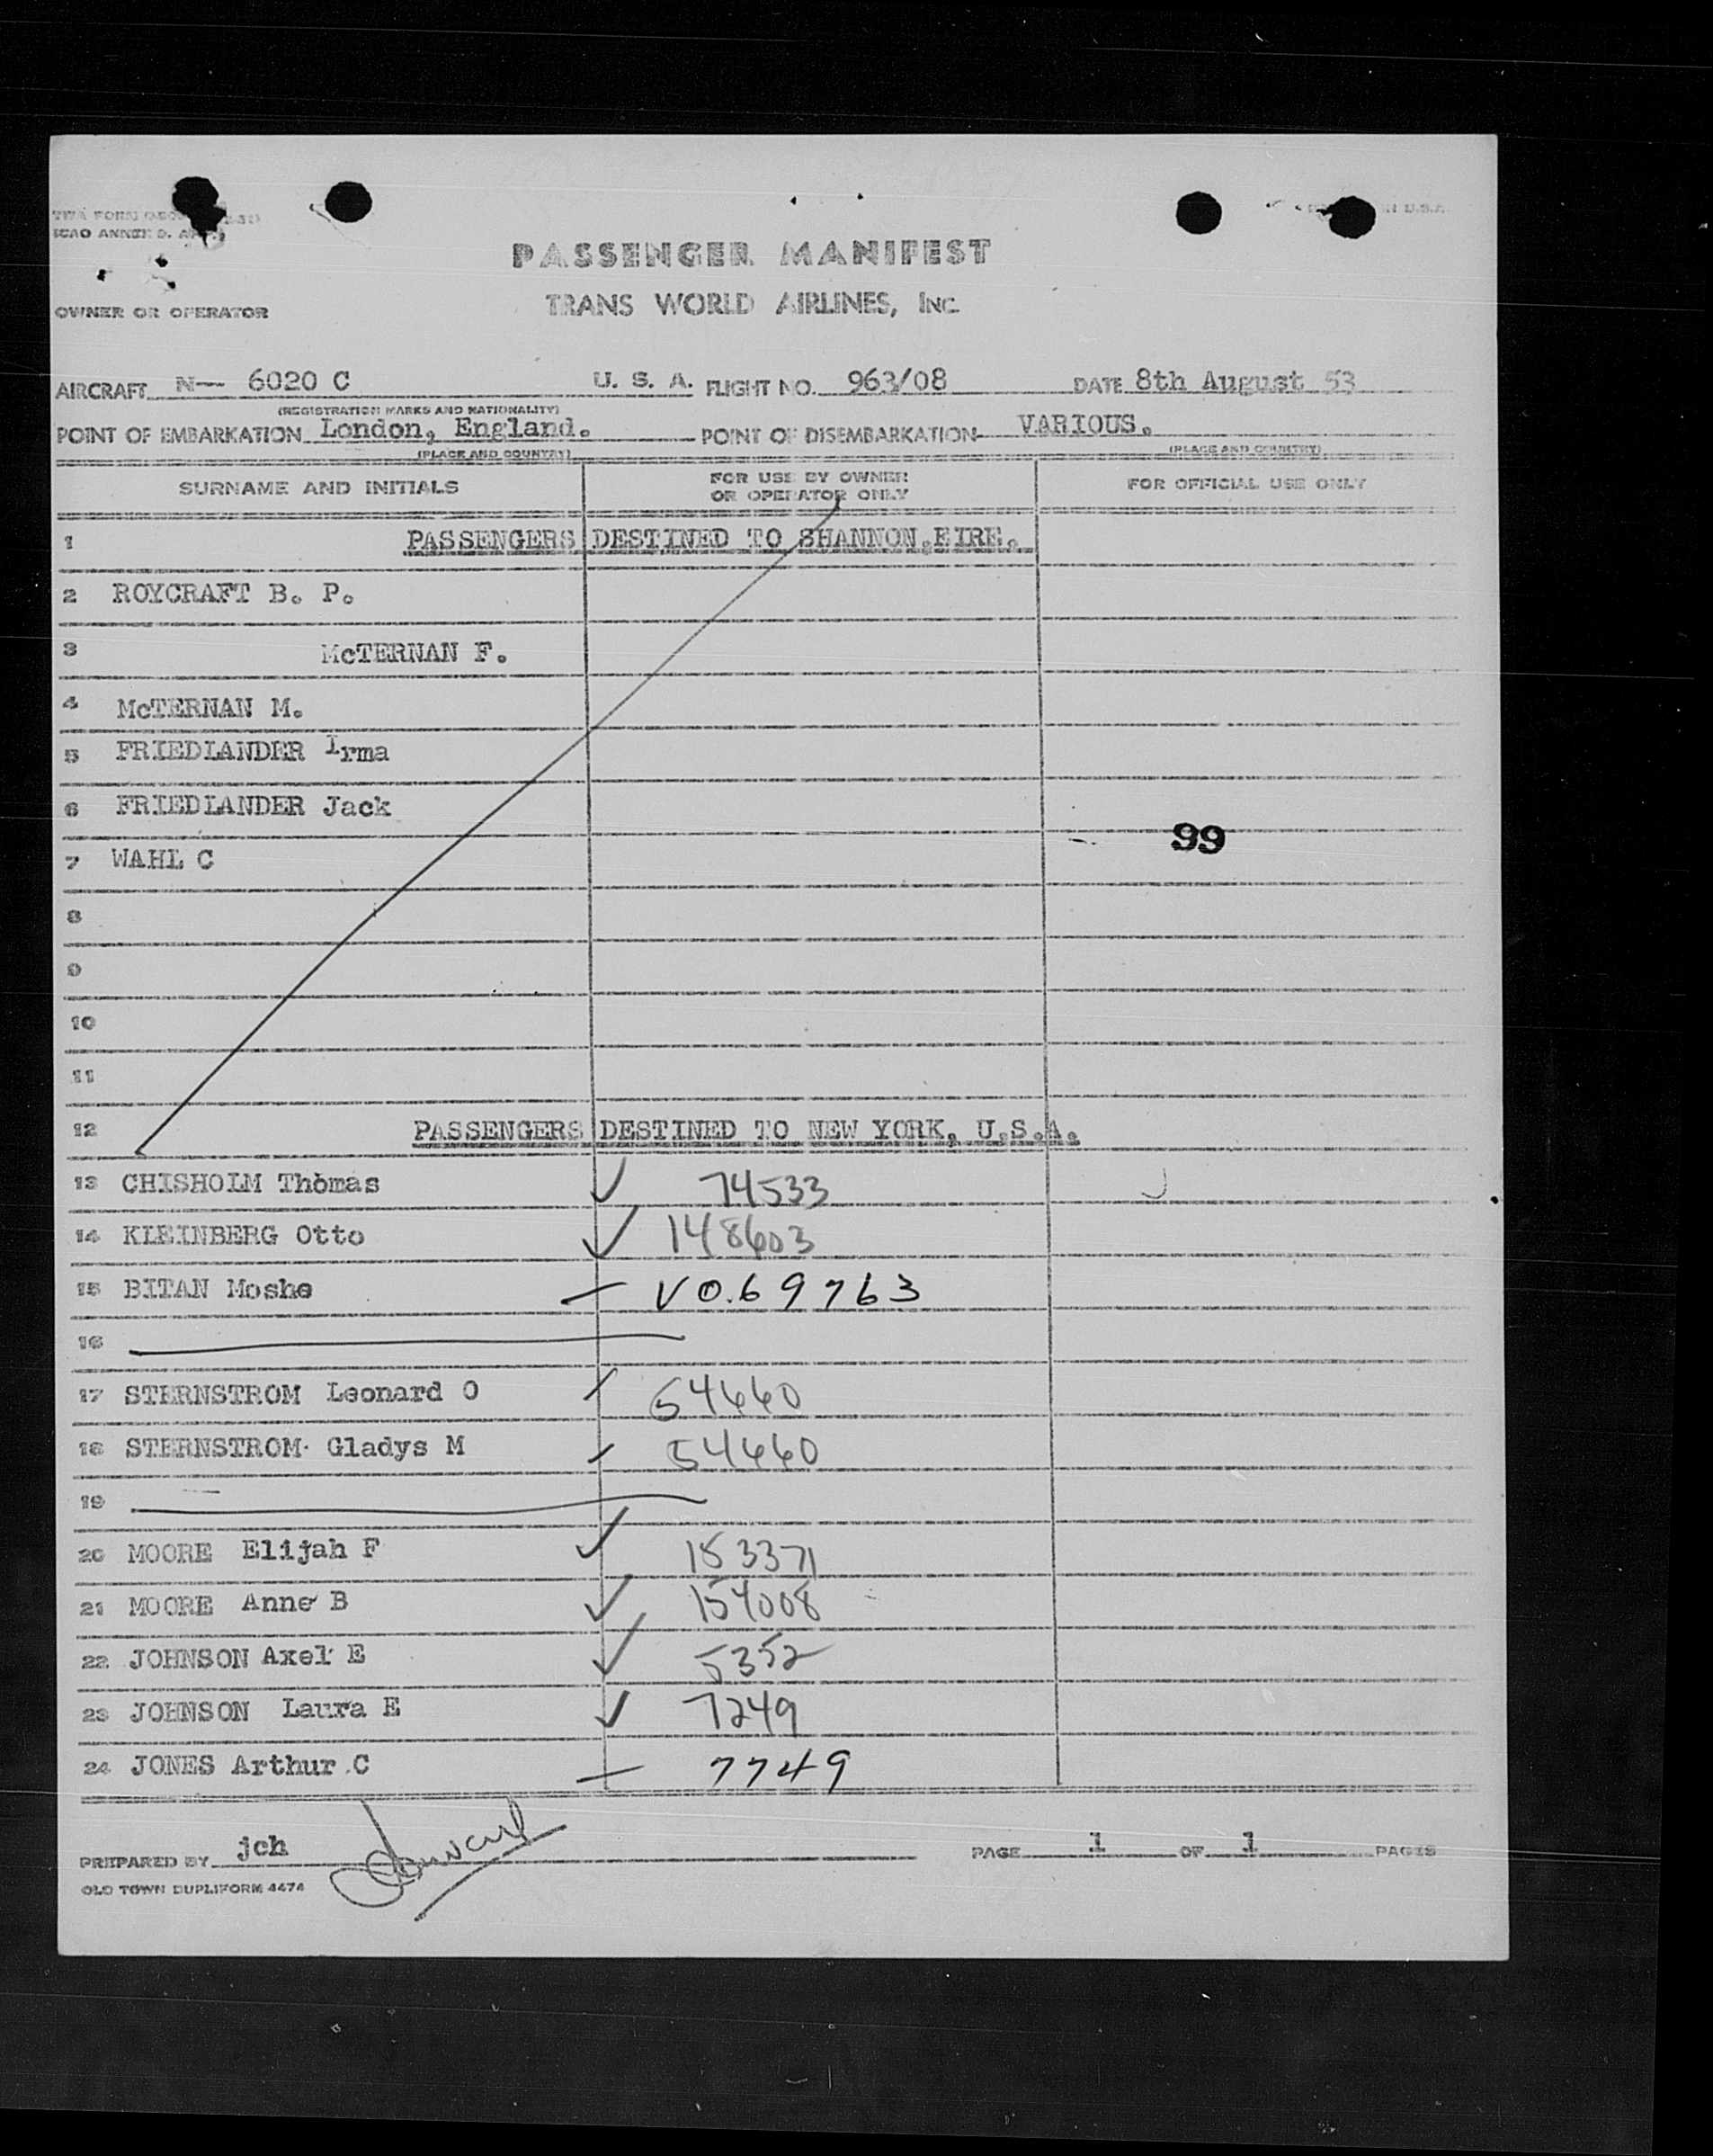 PASSENGER MANIFEST
TRANS WORLD AIRLINES, INC.
OWNER OR OPERATOR
AIRCRAFT N— 6020 C U. S. A. FLIGHT NO. 963/08 DATE 8th August 53
(REGISTRATION MARKS AND NATIONALITY)
POINT OF EMBARKATION London, England. POINT OF DISEMBARKATION VARIOUS.
(PLACE AND COUNTRY) (PLACE AND COUNTRY)
SURNAME AND INITIALS FOR USE BY OWNER OR OPERATOR ONLY FOR OFFICIAL USE ONLY
1 PASSENGERS DESTINED TO SHANNON,EIRE.
2 ROYCRAFT B. P.
3 McTERNAN F.
4 McTERNAN M.
5 FRIEDLANDER Irma
6 FRIEDLANDER Jack
99
7 WAHL C
8
9
10
11
12 PASSENGERS DESTINED TO NEW YORK, U.S.A.
13 CHISHOLM Thomas ✓ 74533
14 KLEINBERG Otto ✓ 148603
15 BITAN Moshe — VO.69763
16
17 STERNSTROM Leonard O 54660
18 STERNSTROM Gladys M 54660
19
20 MOORE Elijah F ✓ 153371
21 MOORE Anne B ✓ 154008
22 JOHNSON Axel E ✓ 5352
23 JOHNSON Laura E ✓ 7249
24 JONES Arthur C — 7749
PREPARED BY jch PAGE 1 OF 1 PAGES
OLD TOWN DUPLIFORM 4474